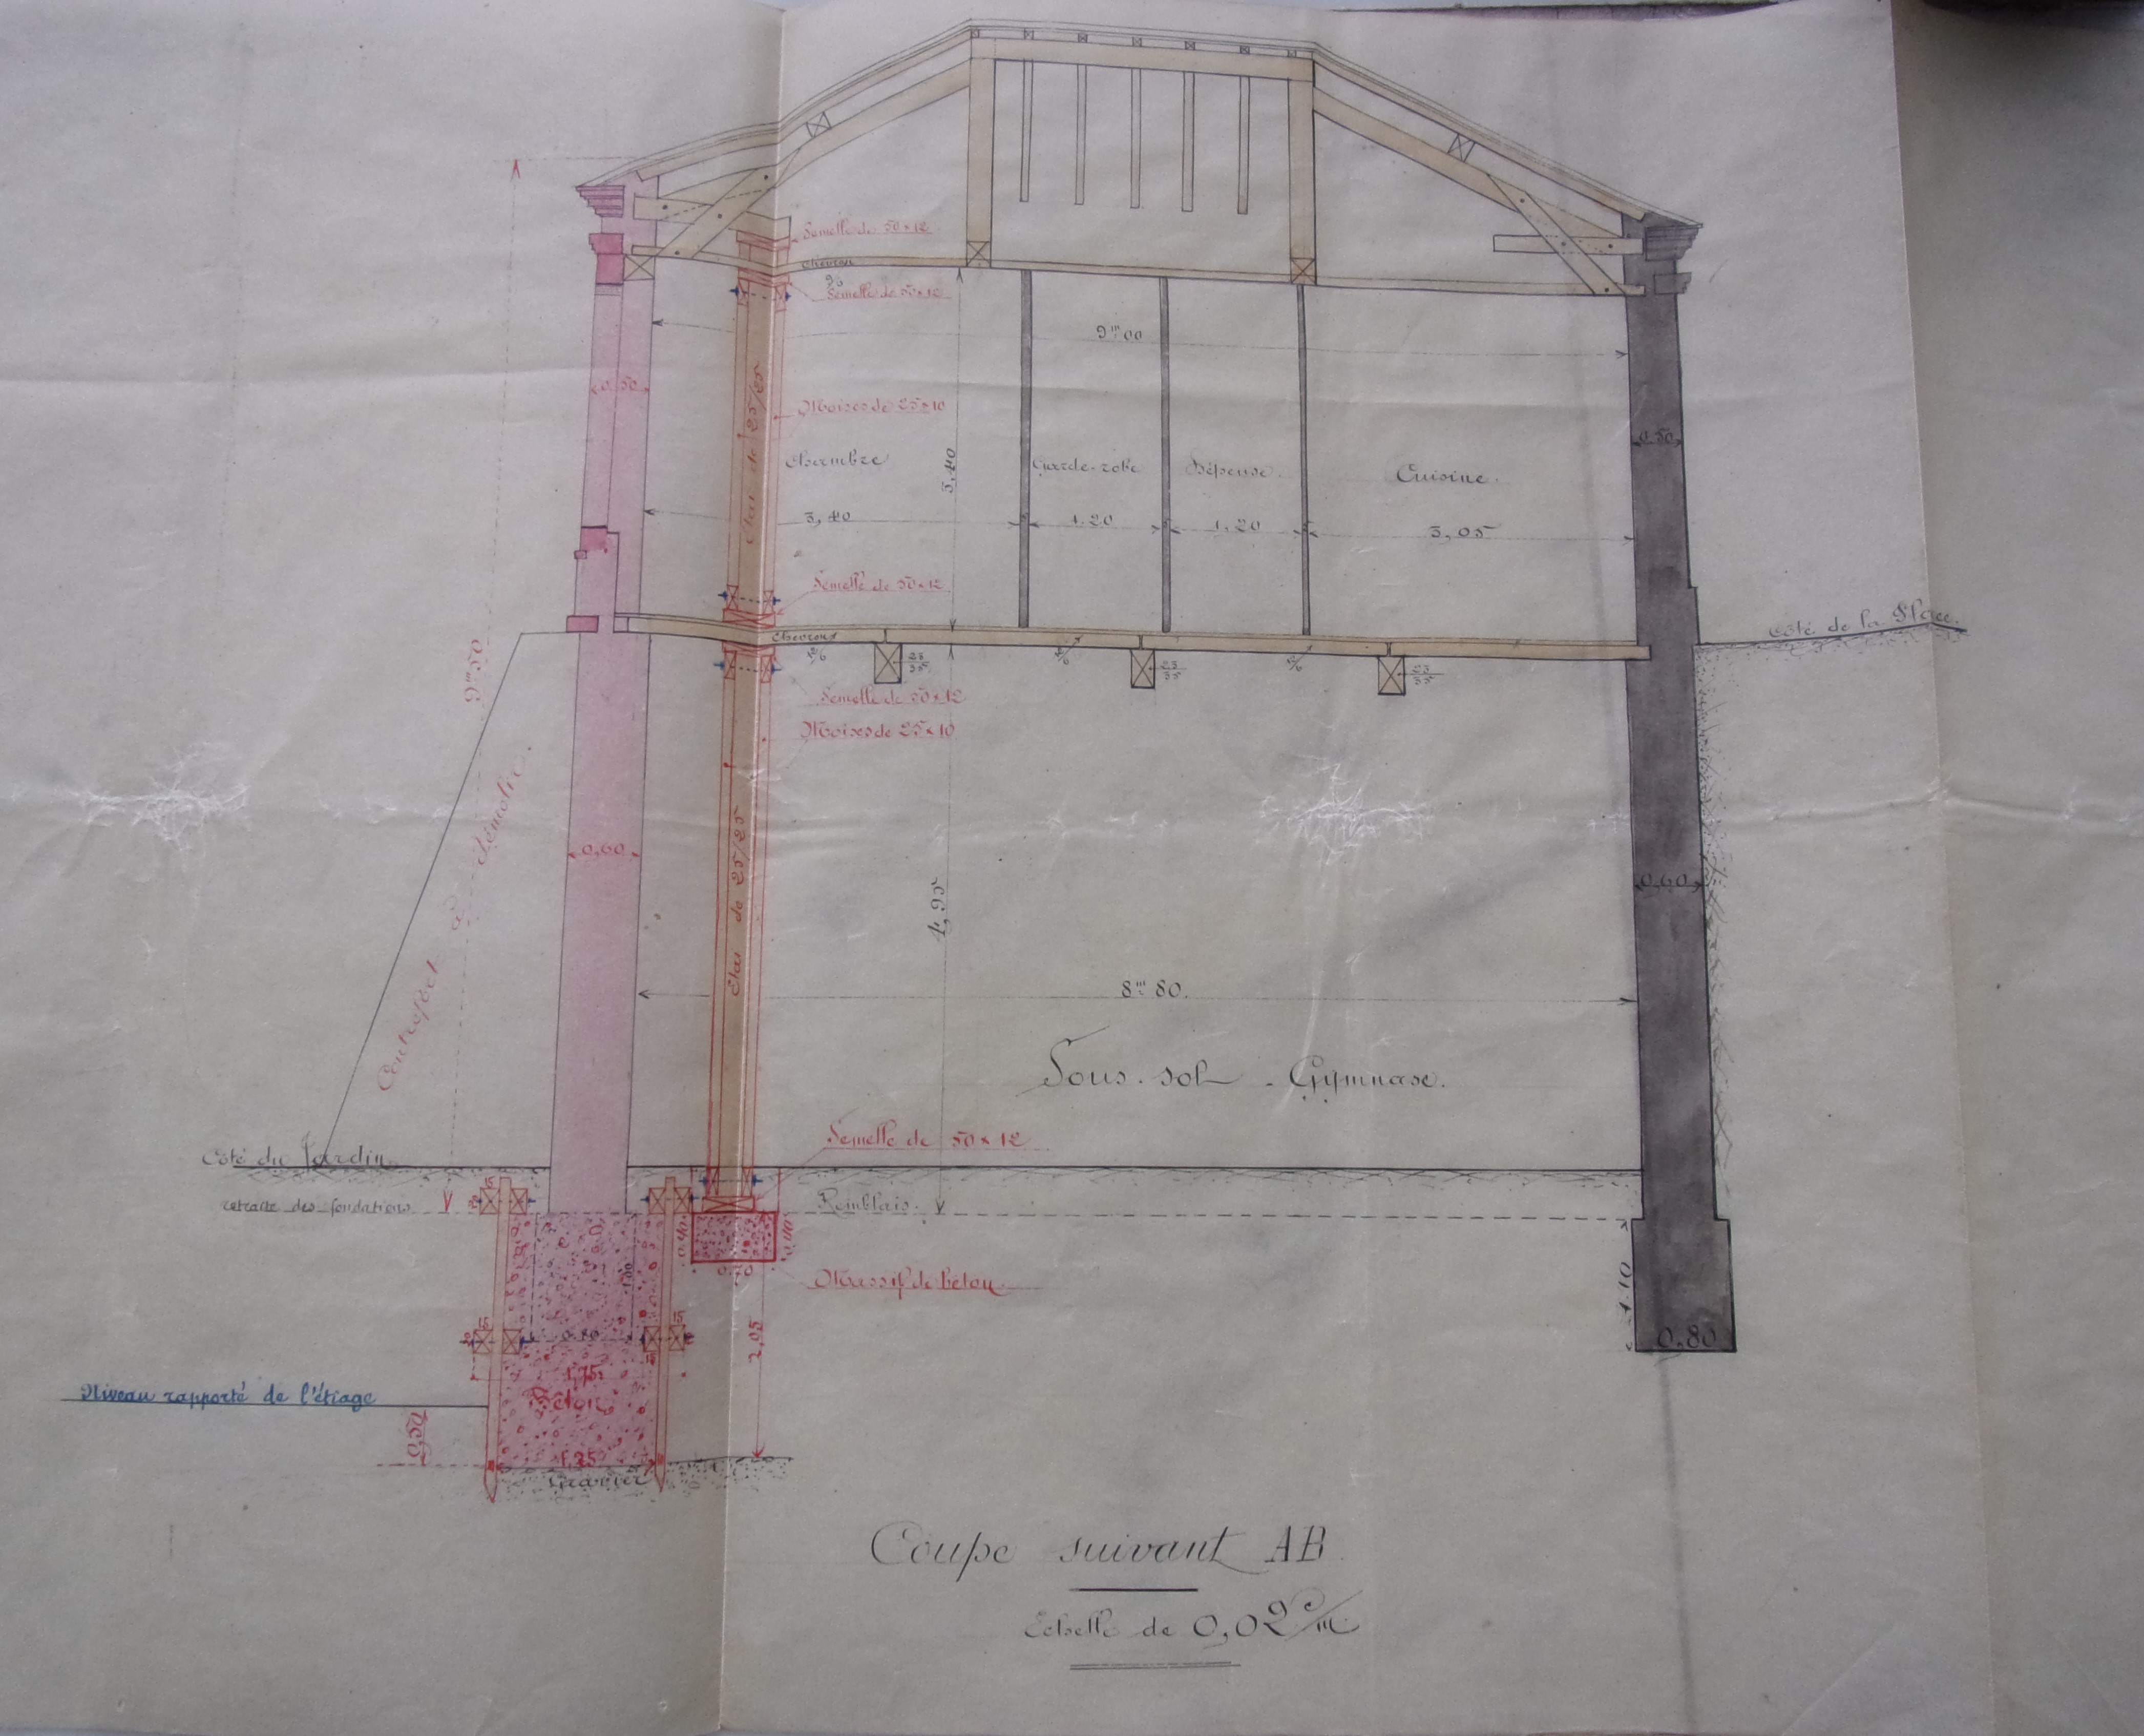 Semelle de 50 x 12
Chevron
Semelle de 50 x 12
9m00
0.50
Moises de 25 x 10
Etai de 25/25
0.50
Chambre
3,40
Garde-robe
Dépense
Cuisine.
3,40
1.20
1,20
3,05
Semelle de 50 x 12
Côté de la Place.
Chevrons
23/35
23/35
23/35
9m50
Semelle de 50 x 12
Moises de 25 x 10
Contrefort à démolir.
0,60
Etai de 25/25
4,95
0,60
8m80.
Sous-sol - Gymnase.
Semelle de 50 x 12
Côté du Jardin
retraite des fondations
Remblais.
0,40
0,40
0,70
Massif de béton
1,00
1,10
0.80
0,80
2,05
1,75
Béton
Niveau rapporté de l'étiage
0,50
1,25
Gravier
Coupe suivant AB.
Echelle de 0,02 c/m